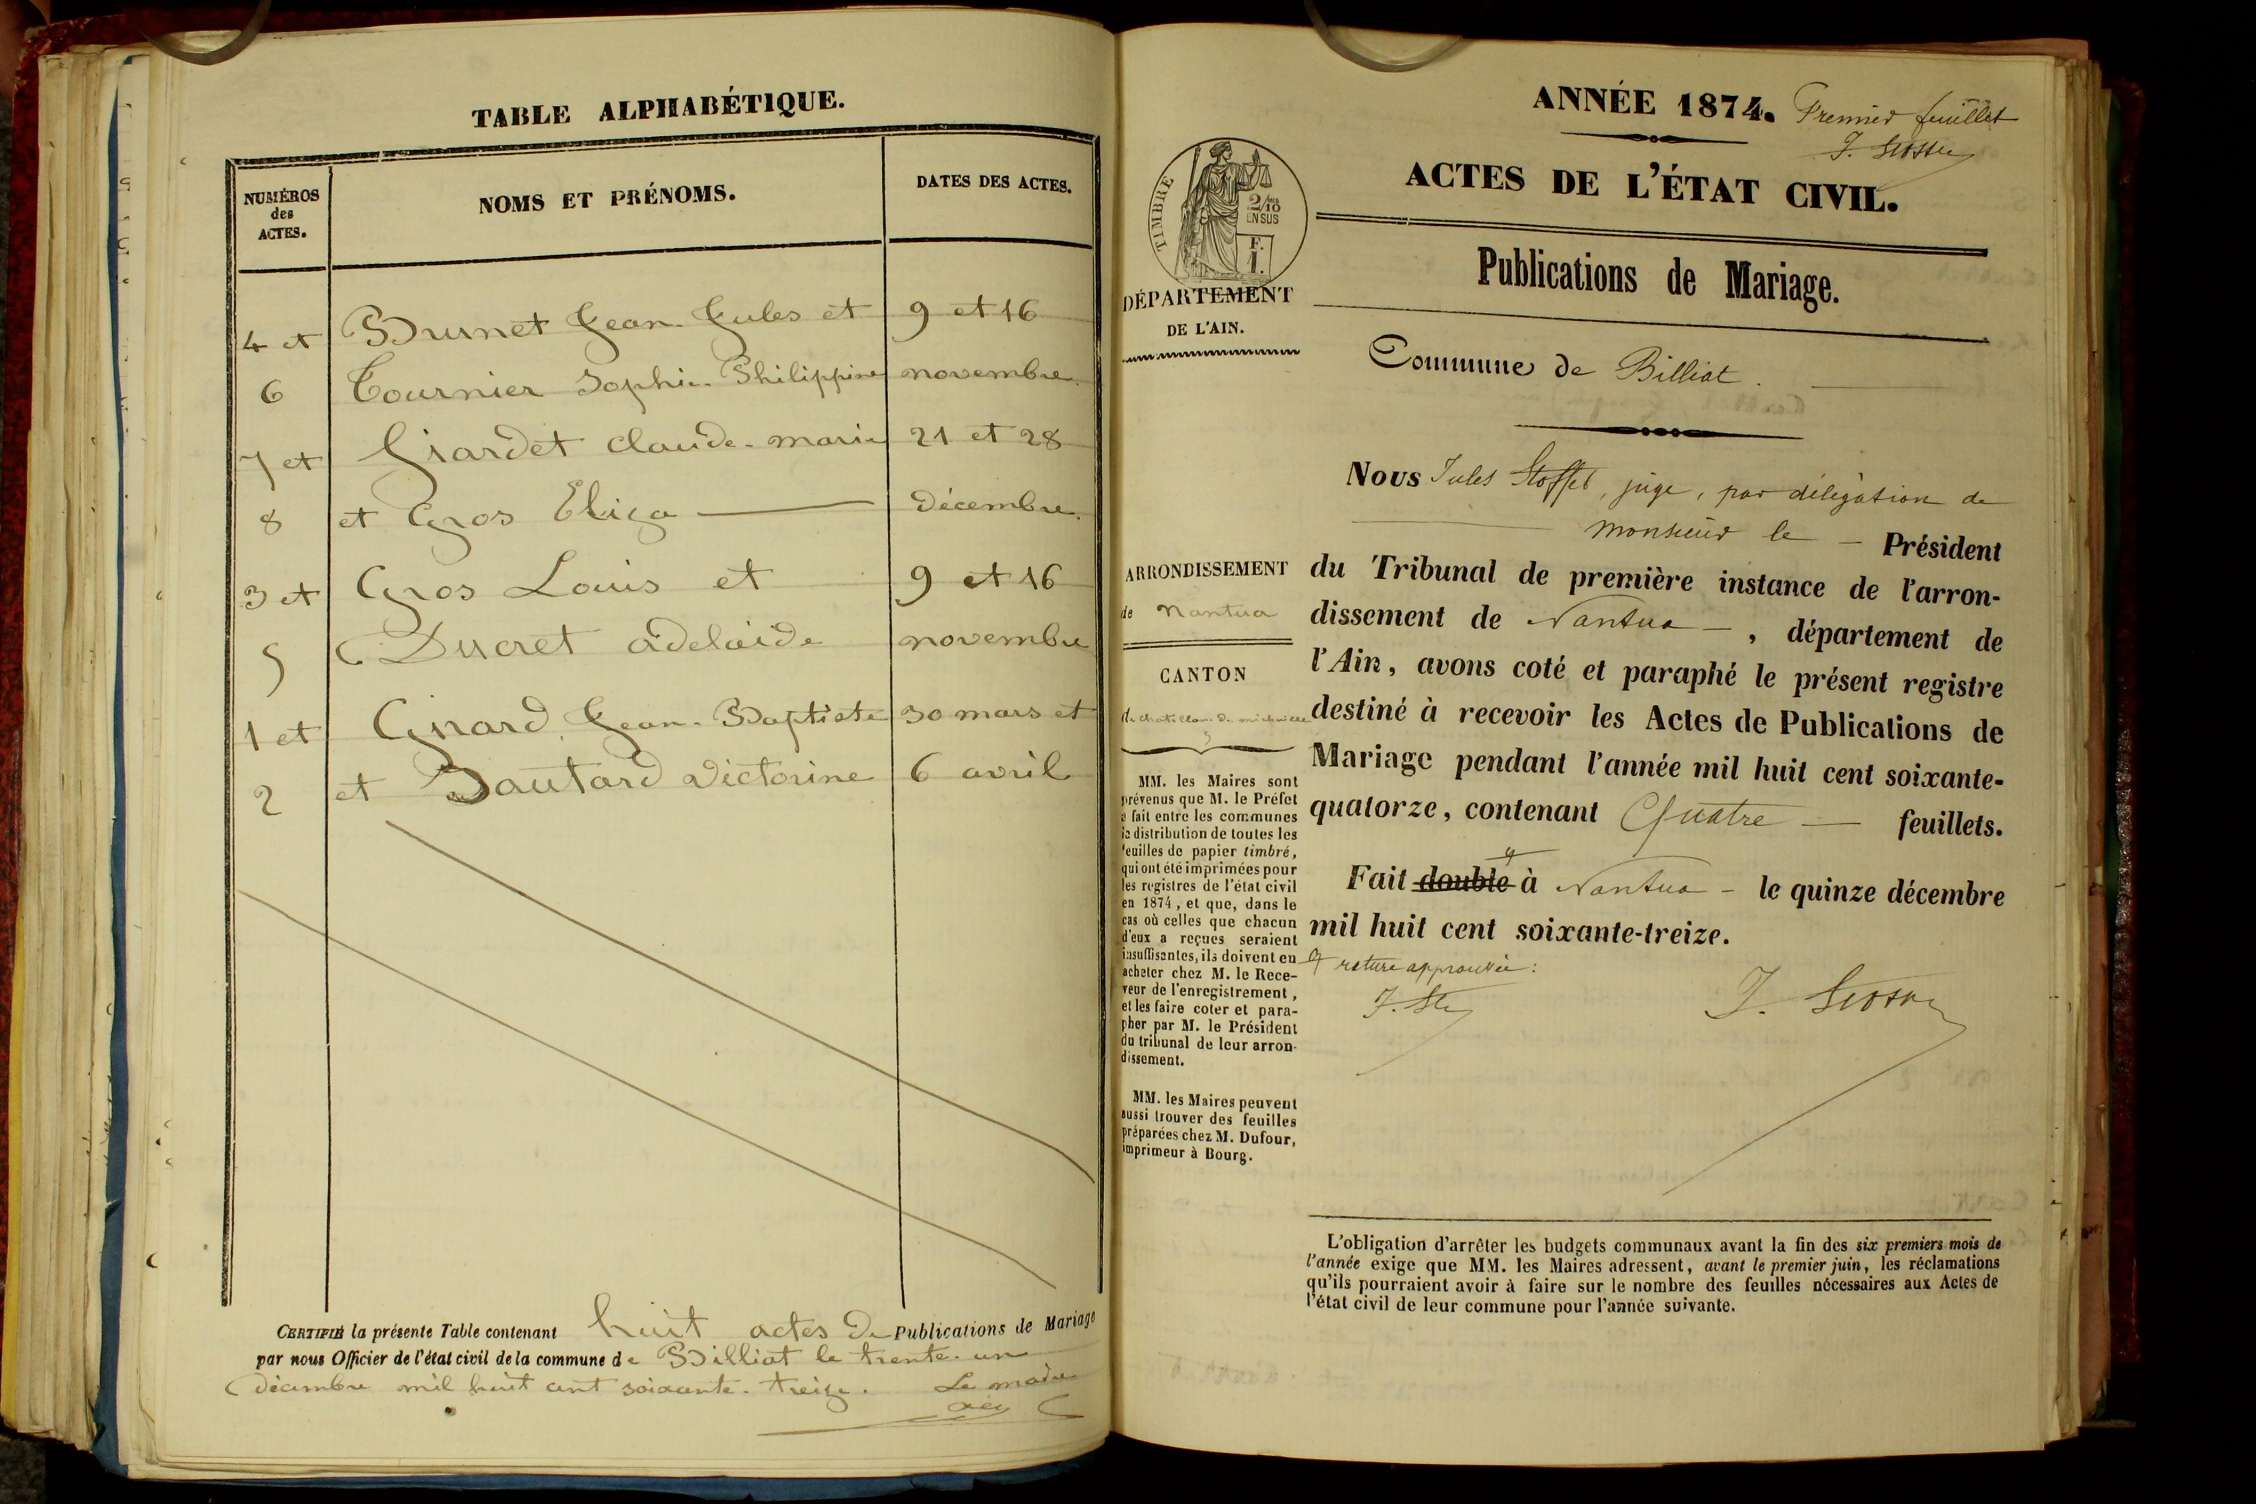 TABLE ALPHABÉTIQUE.
NUMÉROS
des
ACTES.
NOMS ET PRÉNOMS.
DATES DES ACTES.
4 et Brunet Jean-Jules et 9 et 16
6 Tournier Sophie Philippine novembre.
7 et Girardet Claude-marie 21 et 28
8 et Gros Eliza Décembre.
3 et Gros Louis et 9 et 16
5 Ducret adelaide novembre
1 et Gnard Jean-Baptiste 30 mars et
2 et Bautard victorine 6 avril
CERTIFIÉ la présente Table contenant huit actes De Publications de Mariage
par nous Officier de l'état civil de la commune de Billiat le trente-un
décembre mil huit cent soixante-treize. Le maire
ANNÉE 1874. Premier feuillet
ACTES DE L'ÉTAT CIVIL.
Publications de Mariage.
TIMBRE
2/10
EN SUS
F.
1.
DÉPARTEMENT
DE L'AIN.
Commune de Billiat.
Nous Jules Stoffel, juge, par délégation de
monsieur le Président
du Tribunal de première instance de l'arron-
dissement de Nantua, département de
l'Ain, avons coté et paraphé le présent registre
destiné à recevoir les Actes de Publications de
Mariage pendant l'année mil huit cent soixante-
quatorze, contenant Quatre feuillets.
Fait double à Nantua le quinze décembre
mil huit cent soixante-treize.
rature approuvée:
ARRONDISSEMENT
de Nantua
CANTON
de chatillon de michaille
MM. les Maires sont
prévenus que M. le Préfet
a fait entre les communes
la distribution de toutes les
feuilles de papier timbré,
qui ont été imprimées pour
les registres de l'état civil
en 1874, et que, dans le
cas où celles que chacun
d'eux a reçues seraient
insuffisantes, ils doivent en
acheter chez M. le Rece-
veur de l'enregistrement,
et les faire coter et para-
pher par M. le Président
du tribunal de leur arron-
dissement.
MM. les Maires peuvent
aussi trouver des feuilles
préparées chez M. Dufour,
imprimeur à Bourg.
L'obligation d'arrêter les budgets communaux avant la fin des six premiers mois de
l'année exige que MM. les Maires adressent, avant le premier juin, les réclamations
qu'ils pourraient avoir à faire sur le nombre des feuilles nécessaires aux Actes de
l'état civil de leur commune pour l'année suivante.